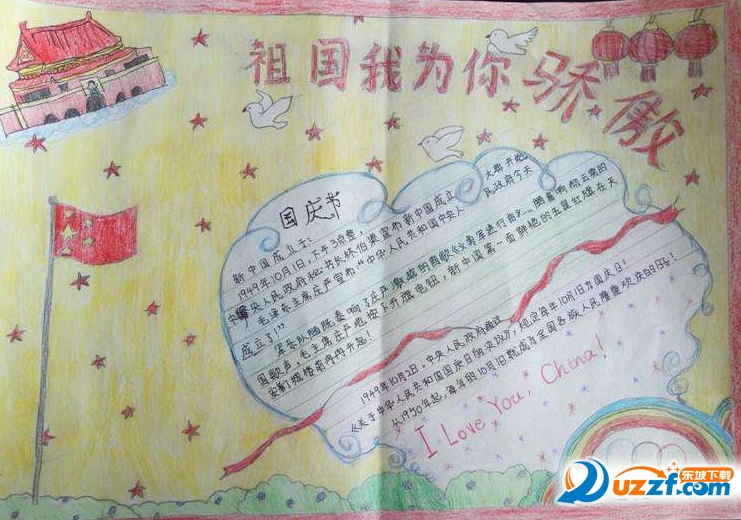 祖国我为你骄傲
国庆节
新中国成立于:
1949年10月1日,下午3点整,
中央人民政府秘书长林伯渠宣布新中国成立
大典开始
毛泽东主席庄严宣布:“中华人民共和国中央人
民政府今天
成立了!”
军乐队
国歌声,毛主席庄严地按下升旗电钮,新中国第一面鲜艳的五星红旗在天
安门城楼前冉冉升起!
1949年10月2日,中央人民政府通过
《关于中华人民共和国国庆日的决议》,规定每年10月1日为国庆日!
从1950年起,每年的10月1日就成为全国各族人民隆重欢庆的日子!
I Love You, China!
东坡下载
uzzf.com